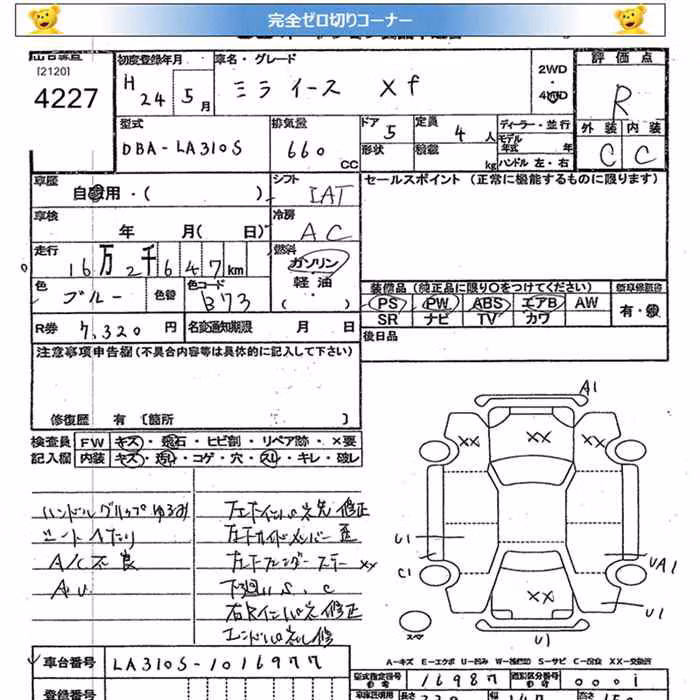 完全ゼロ切りコーナー
[2120]
4227
初度登録年月
H 24 5 月
車名・グレード
ミライース Xf
2WD
・
4WD
評価点
R
外装 内装
C C
型式
DBA-LA310S
排気量
660 CC
ドア 5
形状
定員 4 人
積載 kg
ディーラー・並行
モデル年式 年
ハンドル 左・右
車歴
自家用・( )
シフト
IAT
セールスポイント (正常に機能するものに限ります)
車検
年 月( 日)
冷房
AC
走行
16万2千647km
燃料
ガソリン
軽油
( )
色
ブルー
色替
色コード
B73
装備品 (純正品に限り○をつけてください)
PS PW ABS エアB AW
SR ナビ TV カワ
新車保証書
有・無
R券 7,320 円
名変通知期限 月 日
後日品
注意事項申告欄 (不具合内容等は具体的に記入して下さい)
修復歴 有 [箇所 ]
検査員 FW キズ・飛石・ヒビ割・リペア跡・×要
記入欄 内装 キズ・汚れ・コゲ・穴・スレ・キレ・破レ
ハンドルグリップゆるみ
シートヘタリ
A/C不良
AU
左Fインパネ先修正
左Fサイドメンバー歪
左Fフェンダーステーxx
下廻りS、C
右Rインパネ修正
A1
XX XX XX
U1
C1
UA1
XX
U1
U1
スペア
A-キズ E-エクボ U-凹み W-補修跡 S-サビ C-腐食 XX-交換済
車台番号 LA310S-1016977
登録番号
型式指定番号 16987
類別区分番号 0001